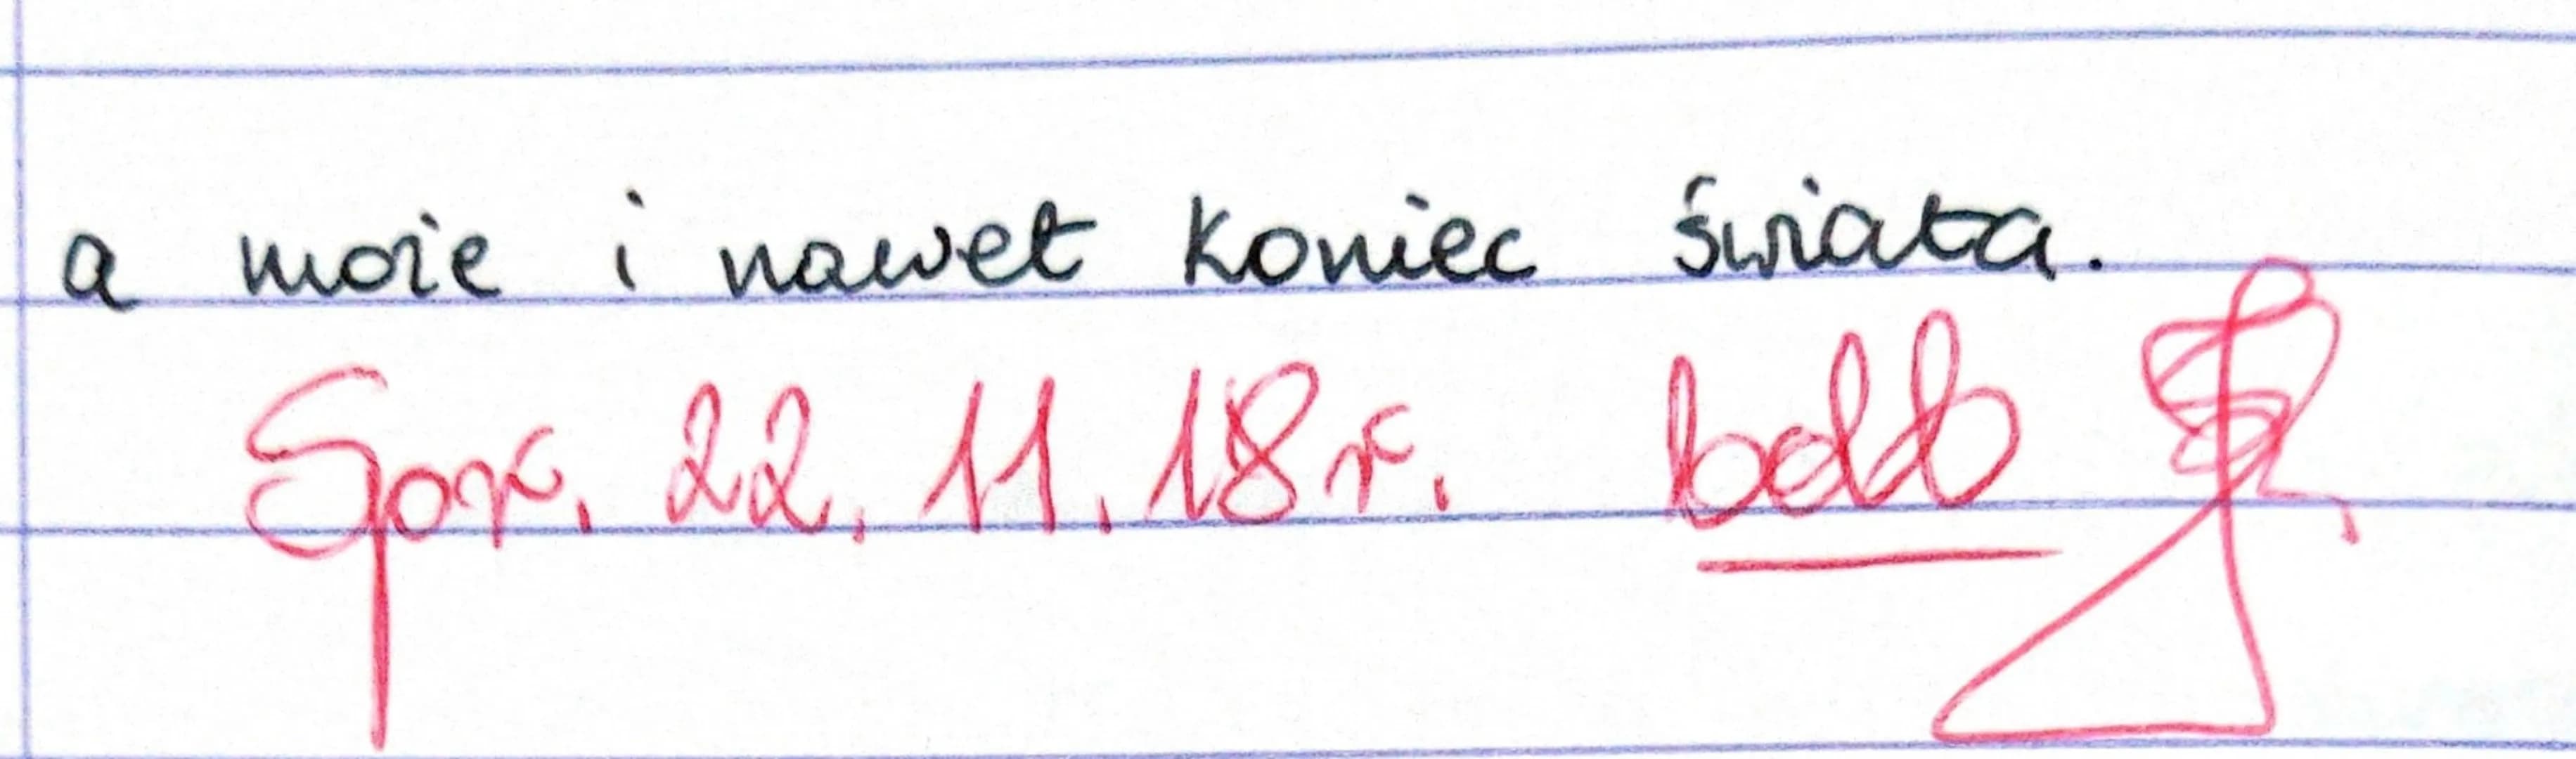 a może i nawet koniec świata.
Spr. 22.11.18r.